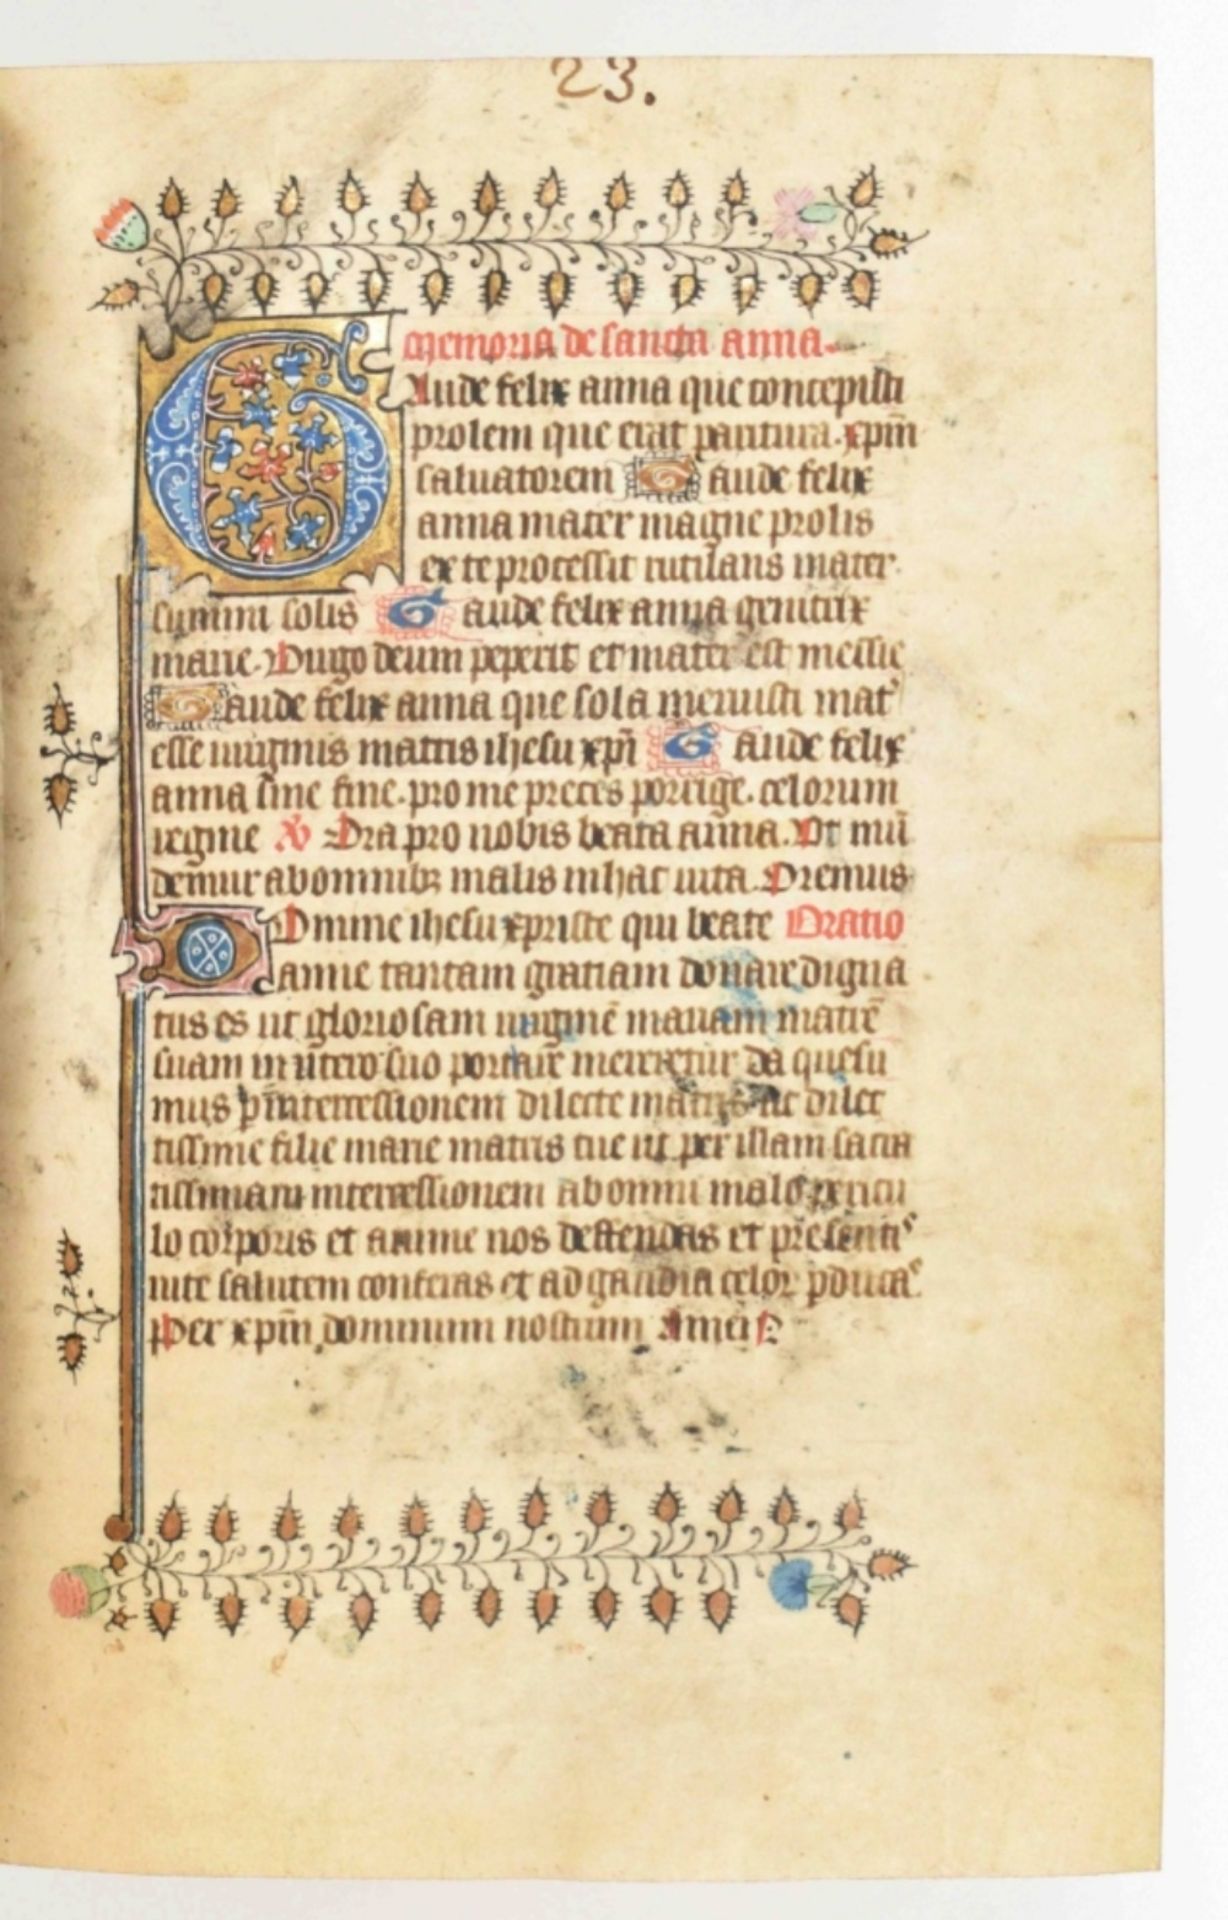 23.
Memoria de sancta anna.
Gaude felix anna que concepisti
prolem que erat paritura. xp̄m
saluatorem Gaude felix
anna mater magne prolis
ex te processit rutilans mater.
summi solis Gaude felix anna genitrix
marie. Uirgo deum peperit et mater est messie
Gaude felix anna que sola meruisti mat᾽
esse uirginis matris ihesu xp̄i Gaude felix
anna sine fine. pro me preces porrige. celorum
regine ℣ Ora pro nobis beata anna. Ut mū
demur ab omnibꝫ malis in hac uita. Oremus
Domine ihesu xpriste qui beate Oratio
anne tantam gratiam donare digna
tus es ut gloriosam uirginē mariam matrē
suam in utero suo portare mereretur da quesu
mus ꝑ intercessionem dilecte matris ac dilec
tissime filie marie matris tue ut per illam sacra
tissimam intercessionem ab omni malo pericu
lo corporis et anime nos deffendas et presentis
uite salutem conferas et ad gaudia celoꝝ ꝑducas
Per xp̄m dominum nostrum Amen